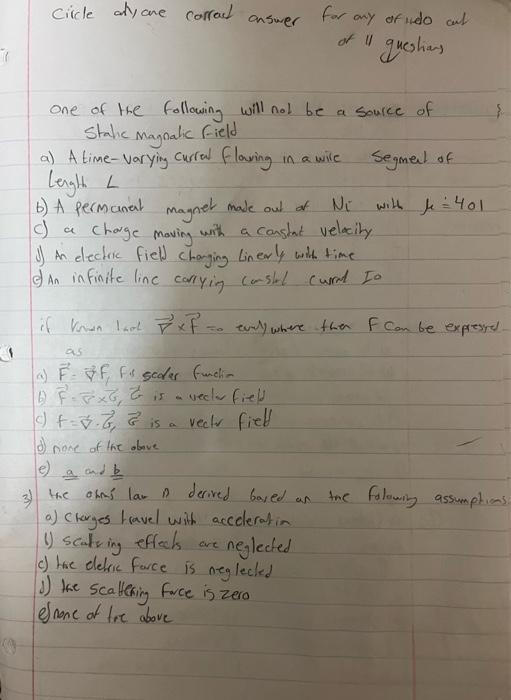 Circle only one correct answer for any of out
of 11 questions
one of the following will not be a source of
Static Magnatic field
a) A time-varying current flowing in a wire segment of
Length L
b) A permanent magnet made out of Ni with μ = 401
c) a charge moving with a constant velocity
d) An electric field changing linearly with time
e) An infinite line carrying constant current Io
if known that ∇×F = 0 everywhere then F can be expressed
as
a) F = ∇f, f is scaler function
b) F = ∇×G, G is a vector field
c) f = ∇·G, G is a vector field
d) none of the above
e) a and b
3) the ohms law is derived based on the folowing assumptions
a) charges travel with acceleration
b) scattering effects are neglected
c) the eletric force is neglected
d) the scattering force is zero
e) none of the above